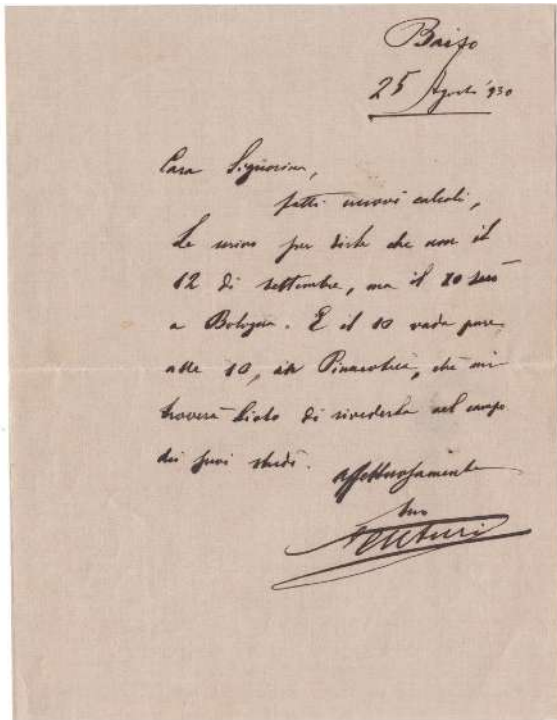 Baiso
25 Agosto '930
Cara Signorina,
fatti nuovi calcoli,
Le scrivo per dirle che non il
12 di settembre, ma il 10 sarò
a Bologna. E il 10 vada pure,
alle 10, in Pinacoteca, chè mi
troverà lieto di rivederla nel campo
dei suoi studi.
Affettuosamente
Suo
AVenturi